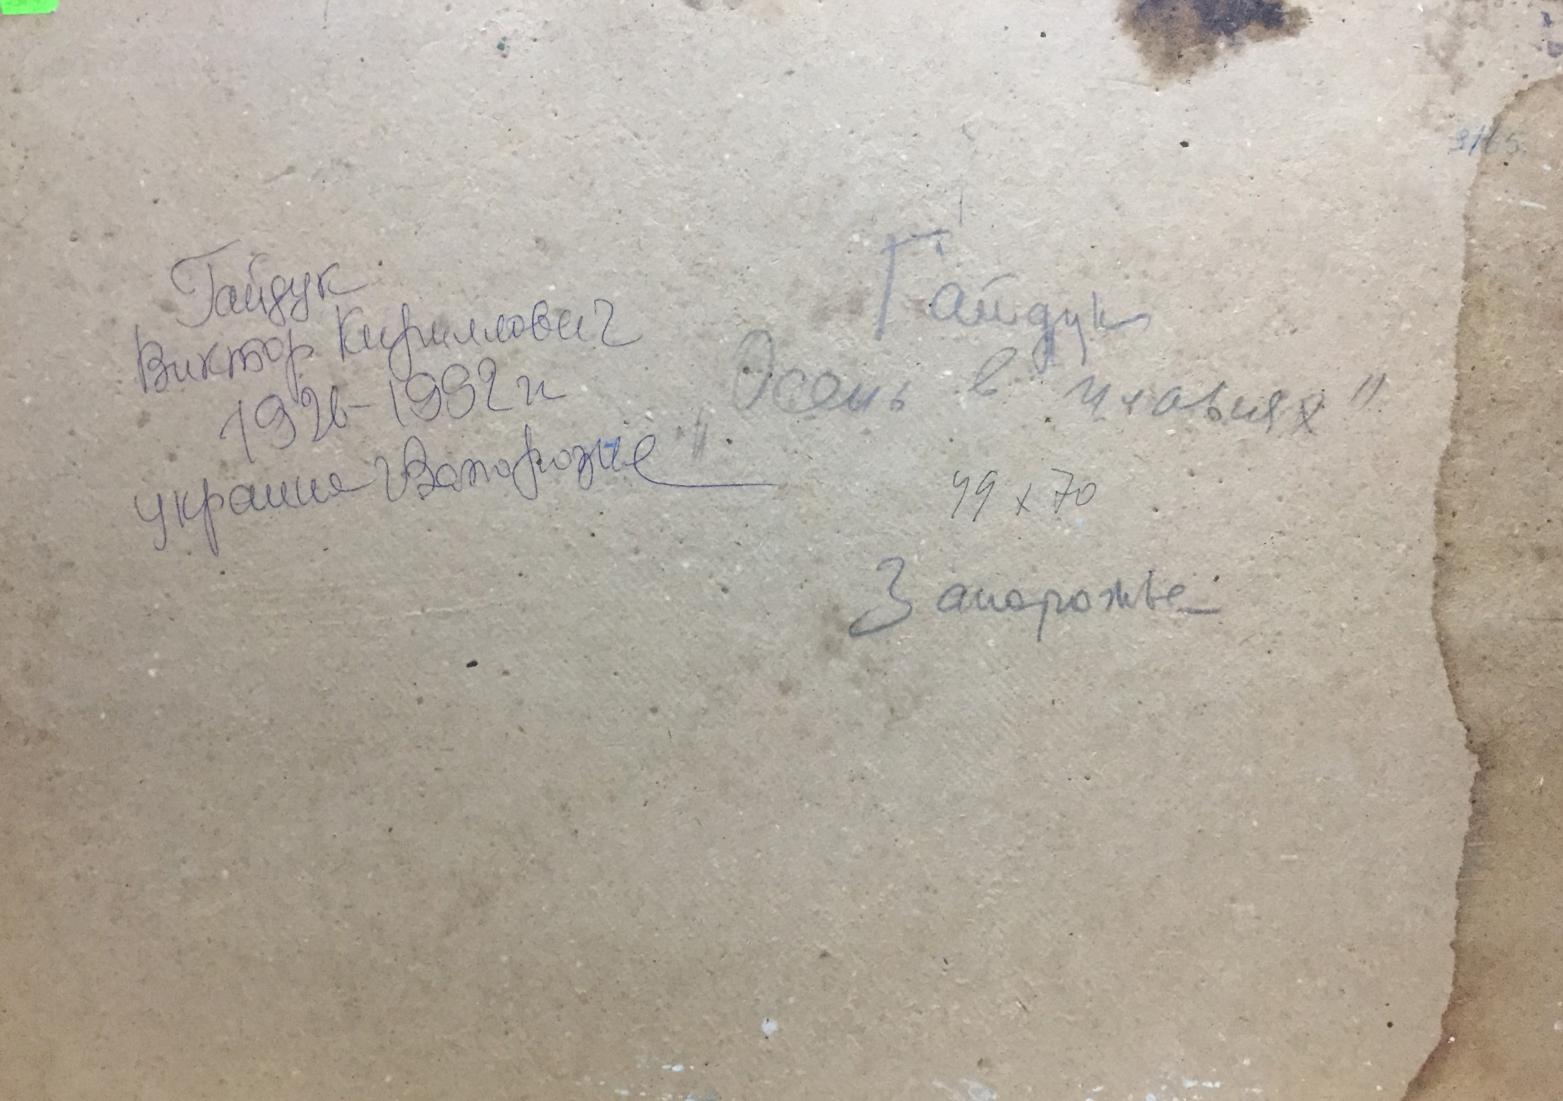 Гайдук
Виктор Кириллович
1926-1992 гг
украина г Запорожье
Гайдук
"Осень в плавнях"
49 x 70
Запорожье